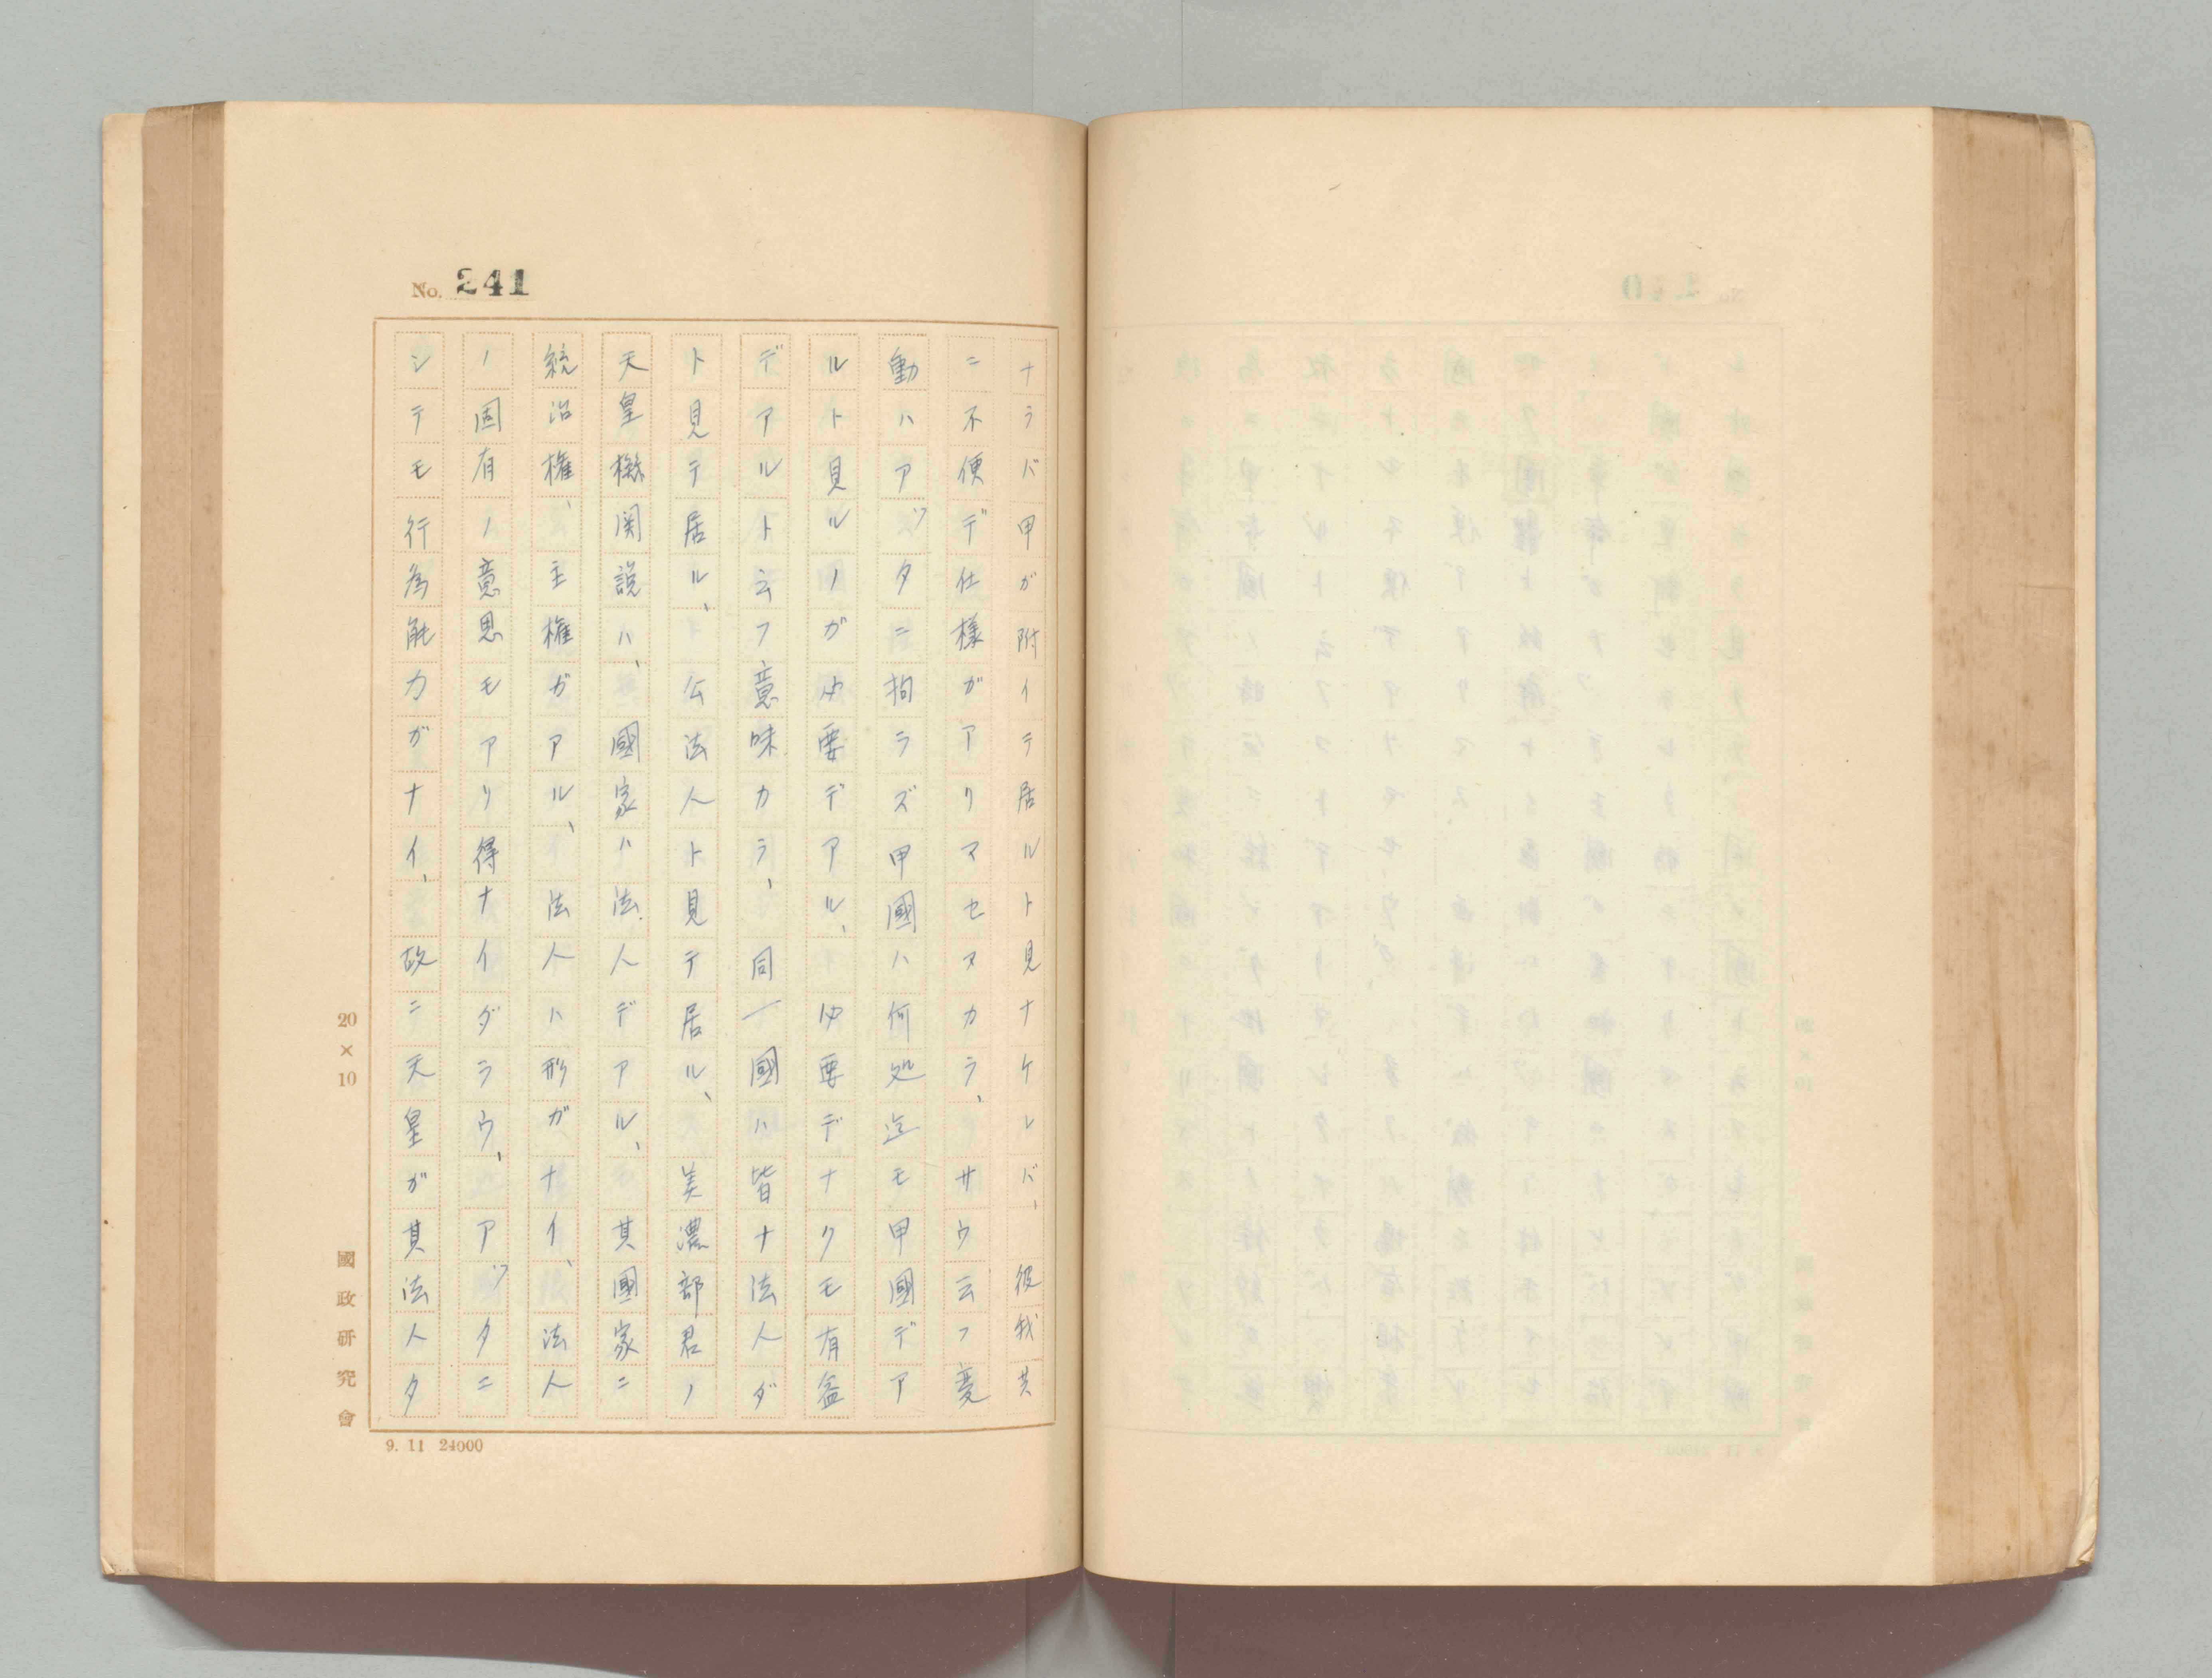 No. 241
ナラバ甲ガ附イテ居ルト見ナケレバ、彼我共
ニ不便デ仕様ガアリマセヌカラ、サウ云フ変
動ハアッタニ拘ラズ甲國ハ何処迄モ甲國デア
ルト見ルノガ必要デアル、必要デナクモ有益
デアルト云フ意味カラ、同一國ハ皆ナ法人ダ
ト見テ居ル、公法人ト見テ居ル、美濃部君ノ
天皇機関説ハ、國家ハ法人デアル、其國家ニ
統治権、主権ガアル、法人ハ形ガナイ、法人
ノ固有ノ意思モアリ得ナイダラウ、アッタニ
シテモ行為能力ガナイ、故ニ天皇ガ其法人タ
20×10
國政研究會
9. 11 24000